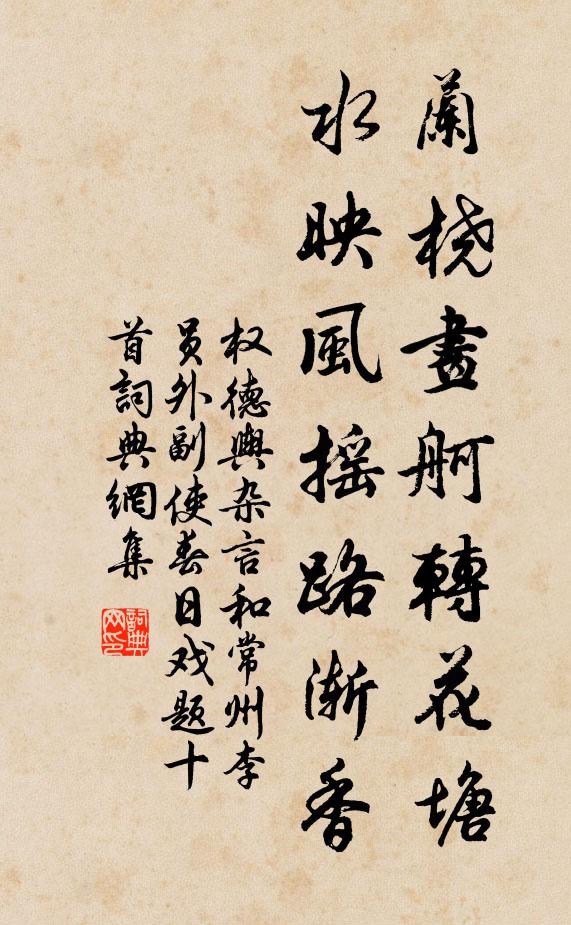 蘭桡畫舸轉花塘
水映風摇路渐香
权德舆杂言和常州李
员外副使春日戏题十
首詞典網集
詞典
网印